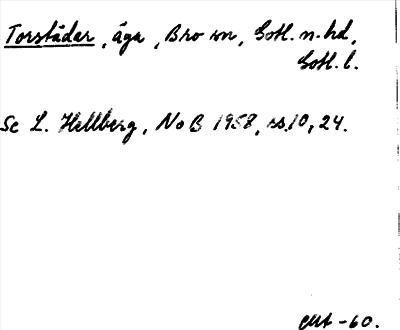 Torstädar, äga, Bro sn, Gotl. n. hd,
Gotl. l.
Se L. Hellberg, NoB 1958, ss. 10, 24.
-60.